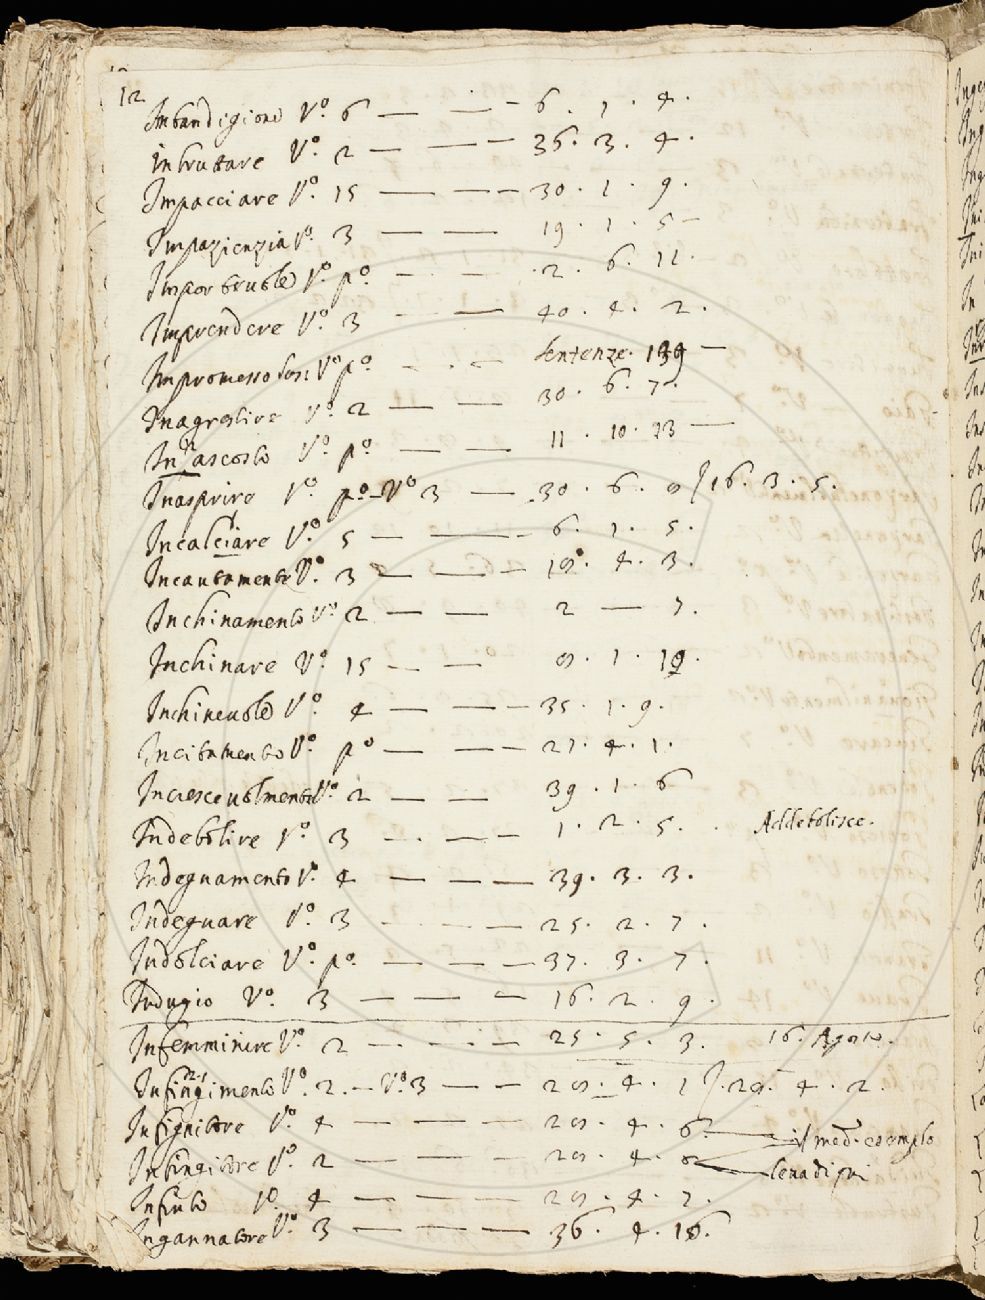 12
Imbandigione Vº. 6 — — - 6 . 1 . 4 .
Inbruttare Vº. 2 — — — 36 . 3 . 4 .
Impacciare Vº. 15 — — — 30 . 1 . 9 .
Impazienzia Vº. 3 — — 19 . 1 . 5 —
Vº. pº. - - - 2 . 6 . 12 .
Imprendere Vº. 3 — — 40 . 4 . 2 .
Vº pº. - - - sentenze . 139 —
Inagrestire Vº. 2 — — 30 . 6 . 7 .
In ascosto Vº. pº. — — 11 . 10 . 23 —
Inasprire Vº. pº. - Vº 3 — 30 . 6 . 8 / 16 . 3 . 5 .
Incalciare Vº. 5 — — 6 . 1 . 5 .
Incautamente Vº. 3 — — - 18 . 4 . 3 .
Inchinamento Vº. 2 — — 2 — 7 .
Inchinare Vº. 15 — — 8 . 1 . 12 .
Inchinevole Vº. 4 — — — 35 . 1 . 9 .
Incitamento Vº. pº — — — 27 . 4 . 1 .
Increscevolmente Vº. 2 — — 39 . 1 . 6
Indebolire Vº. 3 — . — — 1 . 2 . 5 . . Addebolisce .
Indegnamento Vº. 4 — — — 39 . 3 . 3 .
Indegnare Vº. 3 - . - . - — 25 . 2 . 7 .
Indolciare Vº. pº. — — — 37 . 3 . 7 .
Indugio Vº. 3 — — — 16 . 2 . 9 .
Infemminire Vº. 2 — . — . — 25 . 5 . 3 . 16 . Agosto .
Infingimento Vº. 2 . — Vº. 3 — — 28 . 4 . 1 / . 28 . 4 . 2 .
Infignitore Vº. 4 — — — 28 . 4 . 6 . — il med. esemplo
Infingitore Vº. 2 — — — 28 . 4 . 6 — leva di qui
Vº. 4 — — — 28 . 4 . 7 .
Ingannatore Vº. 3 — — — 36 . 4 . 16 .